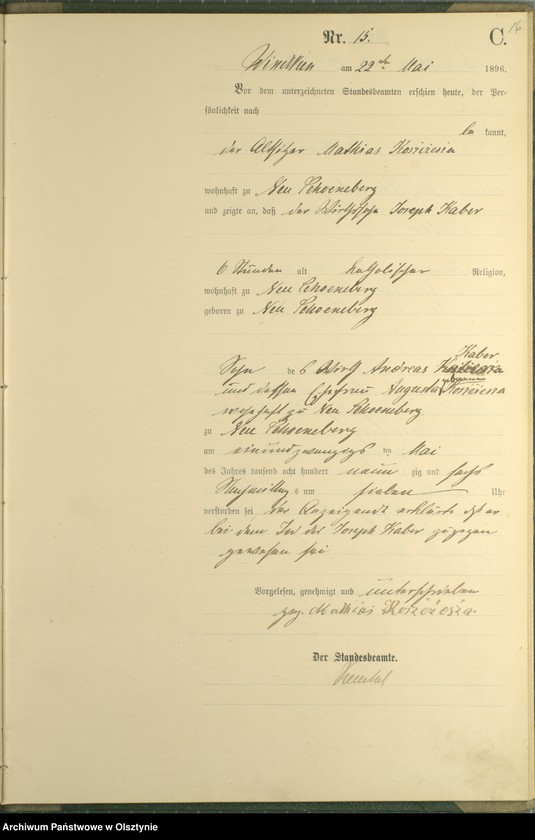 16
Nr. 15. C.
am 22ten Mai 1896.
Vor dem unterzeichneten Standesbeamten erschien heute, der Per-
sönlichkeit nach
be kannt,
der Altsitzer Mathias
wohnhaft zu Neu Schoeneberg
und zeigte an, daß der Wirthssohn Joseph Kaber
6 Stunden alt katholischer Religion,
wohnhaft zu Neu Schoeneberg
geboren zu Neu Schoeneberg
Kaber
Sohn des Wirth Andreas
und dessen Ehefrau Augusta geborenen
wohnhaft zu Neu Schoeneberg
zu Neu Schoeneberg
am einundzwanzigsten Mai
des Jahres tausend acht hundert neun zig und sechs
Nachmittags um sieben Uhr
verstorben sei der Anzeigende erklärte daß er
bei dem Tode des Joseph Kaber zugegen
gewesen sei
Vorgelesen, genehmigt und unterschrieben
gez. Mathias
Der Standesbeamte.
Archiwum Państwowe w Olsztynie